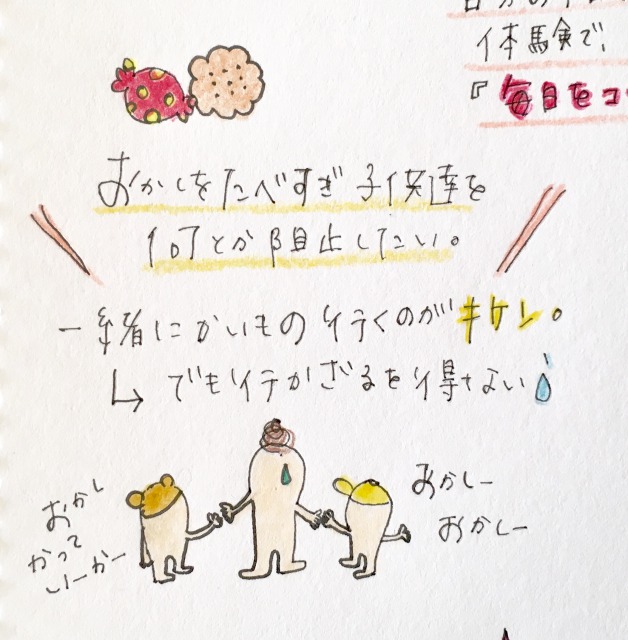 体験で、
『毎日をコ
おかしをたべすぎ子供達を
何とか阻止したい。
一緒にかいもの行くのがキケン。
↳ でも行かざるを得ない
おかし
かって
いーかー
おかしー
おかしー